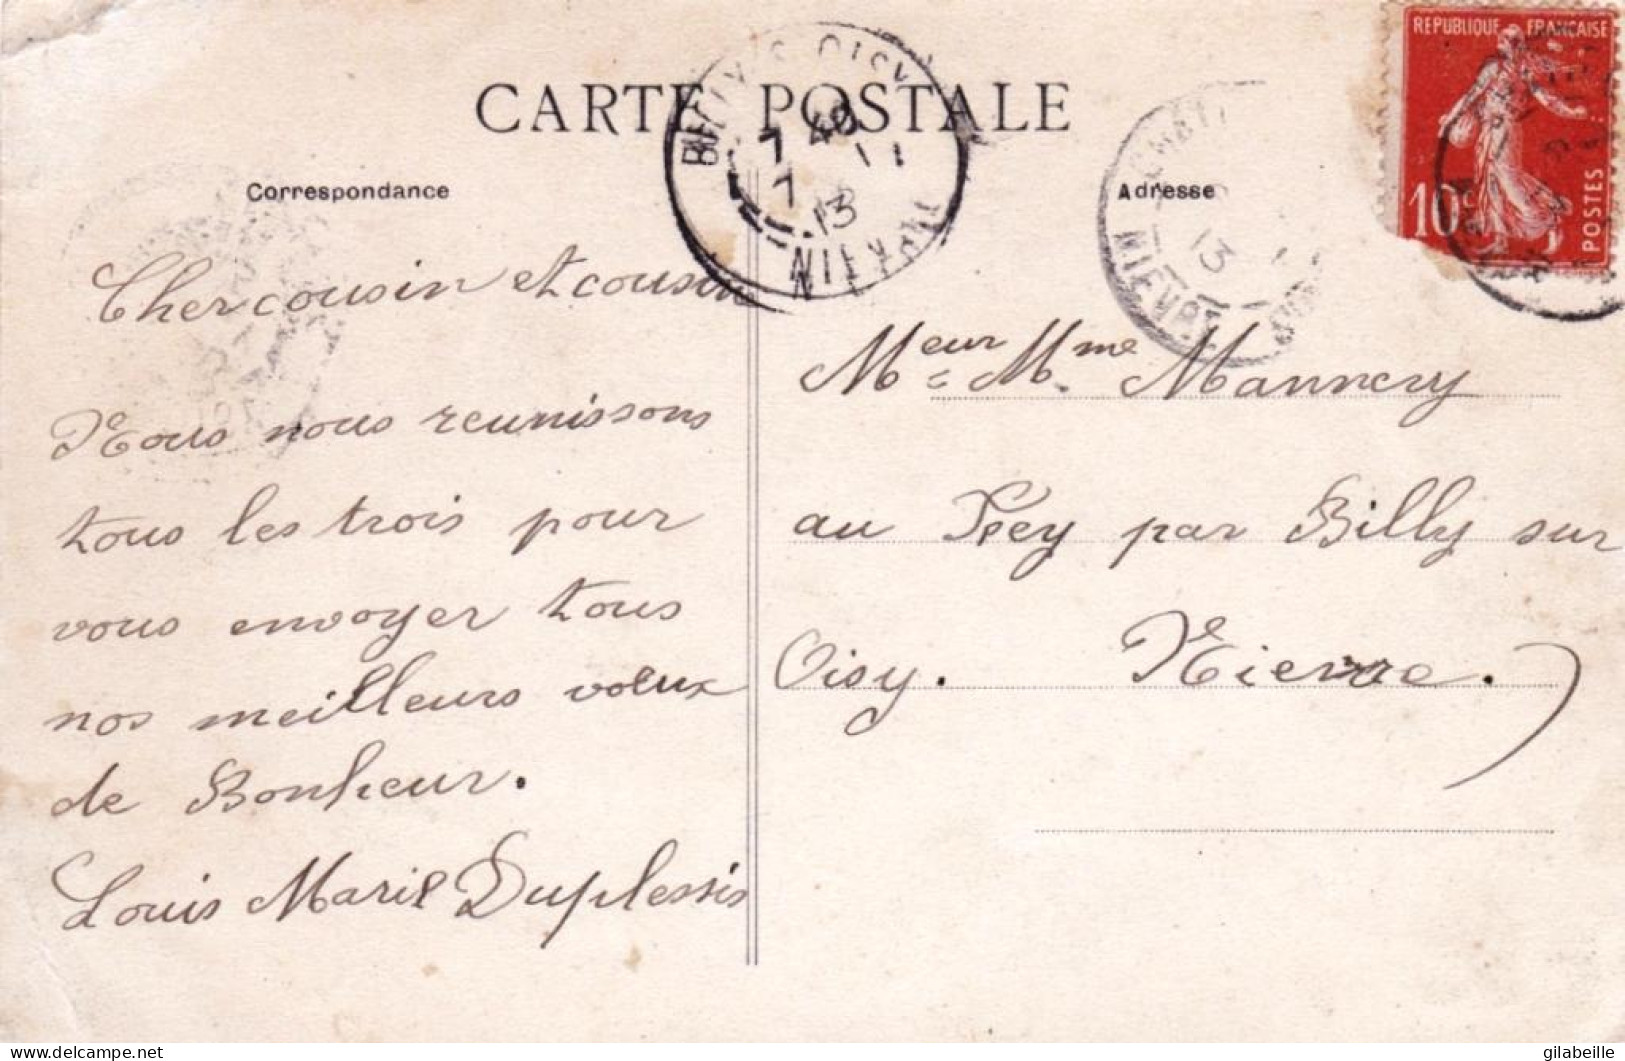 CARTE POSTALE
Correspondance
Cher cousin et cousine
Nous nous reunissons
tous les trois pour
vous envoyer tous
nos meilleurs voeux
de Bonheur.
Louis Marie Duplessis
Adresse
Meur Mme Mannery
au Prey par Billy sur
Oisy. Nievre.
REPUBLIQUE FRANÇAISE
10c
POSTES
7 40
7 1
13
NIEVRE
13
delcampe.net
gilabeille